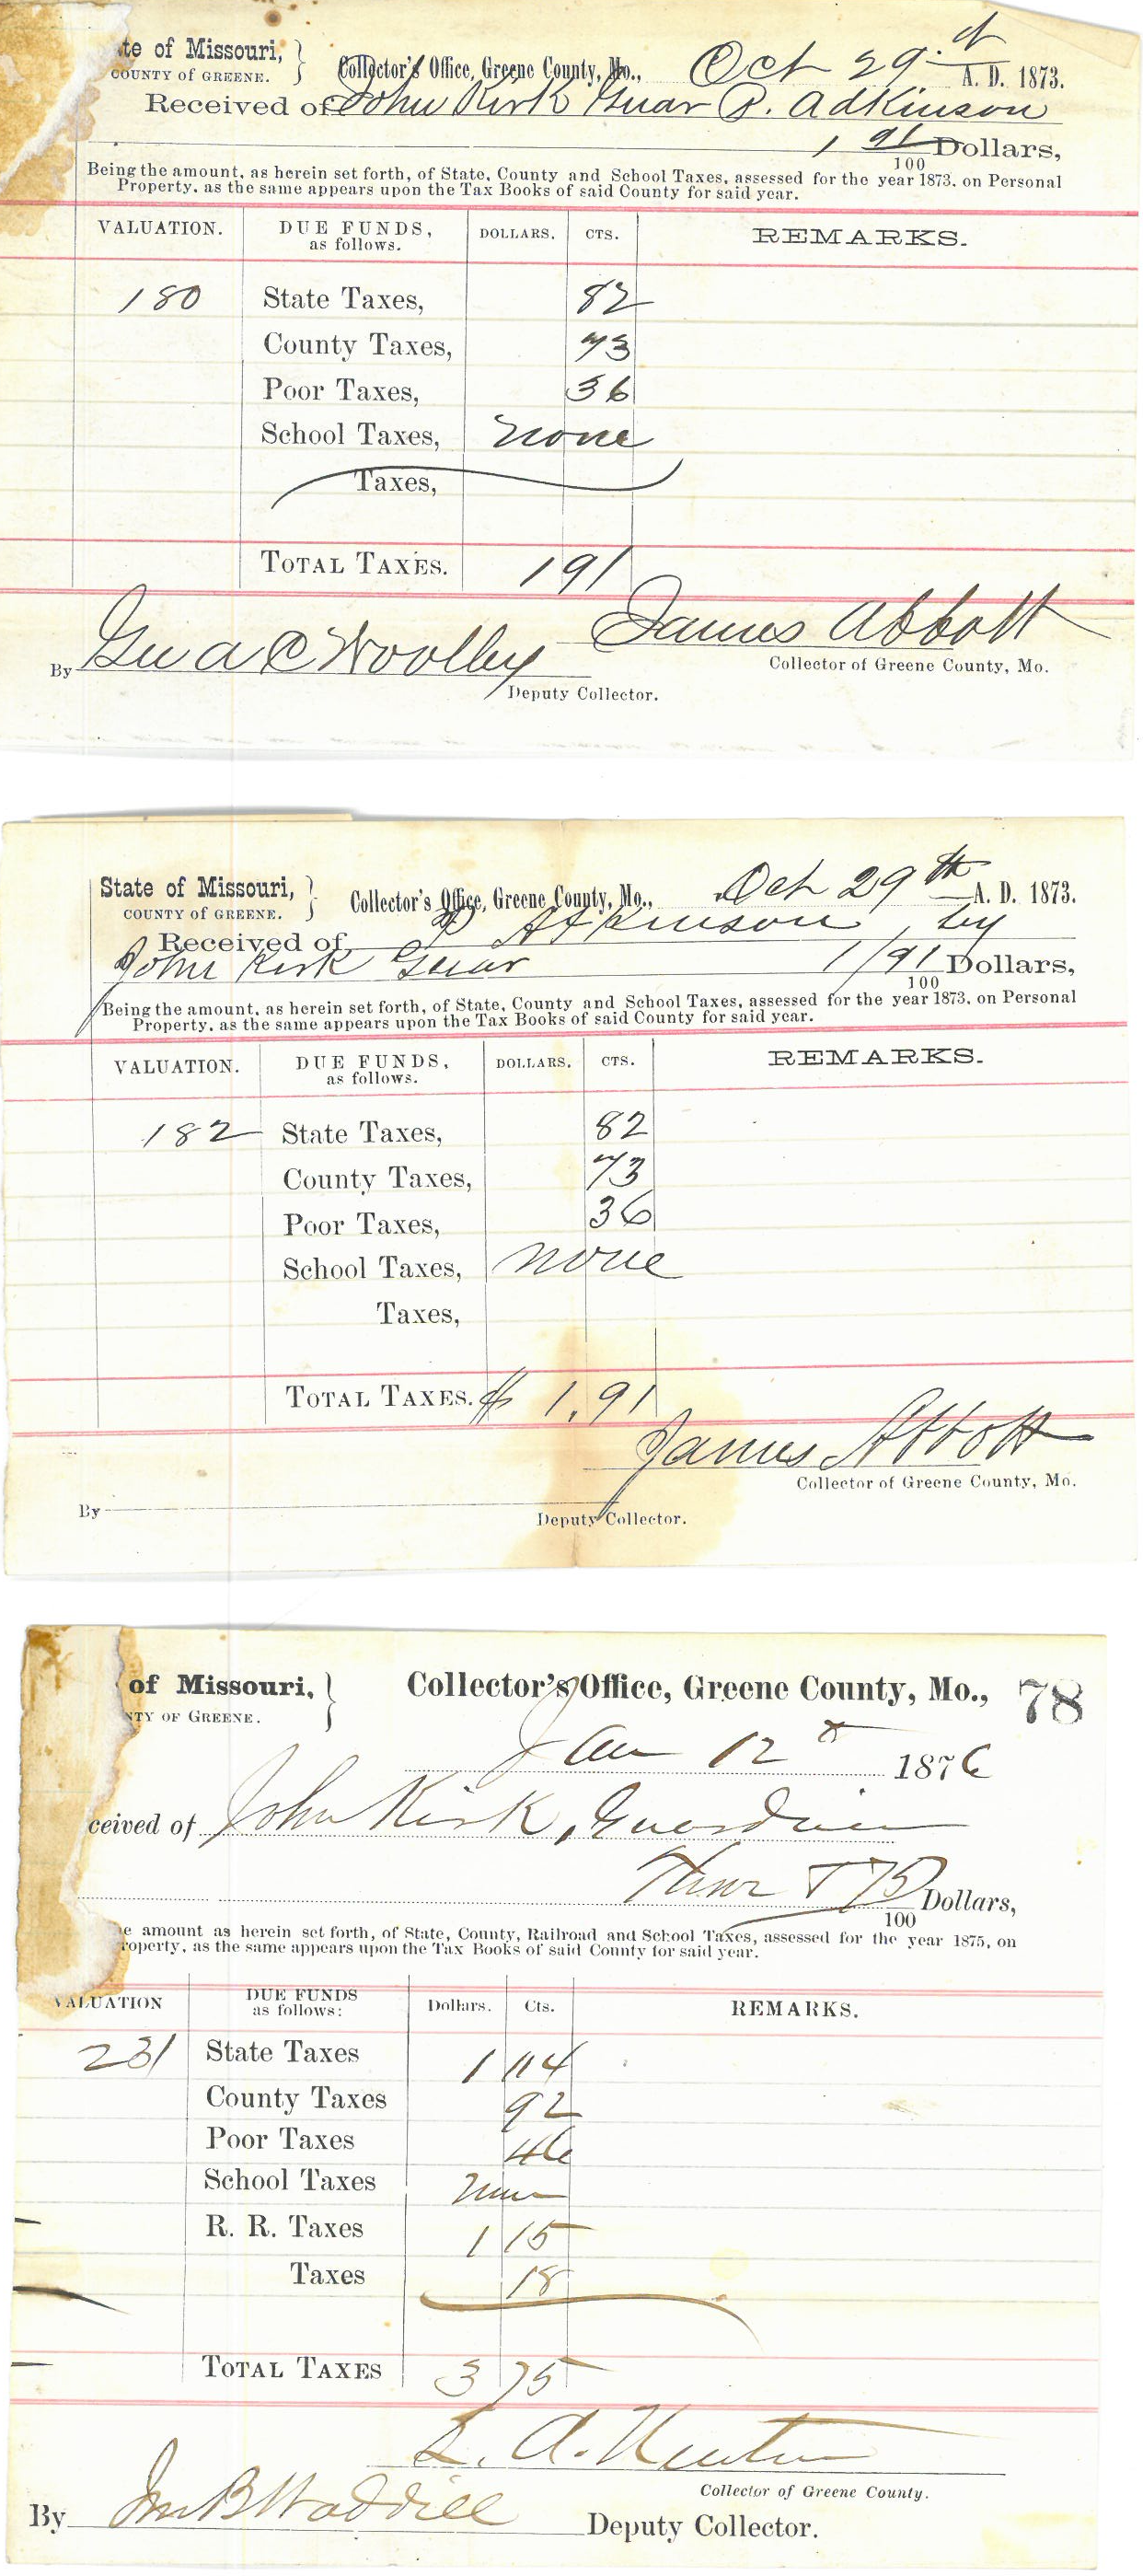 te of Missouri, } Collector's Office, Greene County, Mo., Oct 29th A. D. 1873.
COUNTY of GREENE.
Received of John Kirk Guar P. Adkinson
1 91/100 Dollars,
Being the amount, as herein set forth, of State, County and School Taxes, assessed for the year 1873, on Personal
Property, as the same appears upon the Tax Books of said County for said year.
VALUATION. DUE FUNDS, as follows. DOLLARS. CTS. REMARKS.
180 State Taxes, 82
County Taxes, 73
Poor Taxes, 36
School Taxes, none
Taxes,
TOTAL TAXES. 191
James Abbott
Collector of Greene County, Mo.
By Woolley
Deputy Collector.
State of Missouri, } Collector's Office, Greene County, Mo., Oct 29th A. D. 1873.
COUNTY of GREENE.
Received of P Atkinson, by
John Kirk Guar 1/91 Dollars,
100
Being the amount, as herein set forth, of State, County and School Taxes, assessed for the year 1873, on Personal
Property, as the same appears upon the Tax Books of said County for said year.
VALUATION. DUE FUNDS, as follows. DOLLARS. CTS. REMARKS.
182 State Taxes, 82
County Taxes, 73
Poor Taxes, 36
School Taxes, none
Taxes,
TOTAL TAXES. $ 1.91
James Abbott
Collector of Greene County, Mo.
By
Deputy Collector.
of Missouri, } Collector's Office, Greene County, Mo., 78
NTY OF GREENE.
Jan 12th 1876
ceived of John Kirk, Guardian
Three & 75/100 Dollars,
e amount as herein set forth, of State, County, Railroad and School Taxes, assessed for the year 1875, on
roperty, as the same appears upon the Tax Books of said County for said year.
VALUATION DUE FUNDS as follows: Dollars. Cts. REMARKS.
231 State Taxes 1 04
County Taxes 92
Poor Taxes 46
School Taxes None
R. R. Taxes 1 15
Taxes 18
TOTAL TAXES 3 75
L. A. Newton
Collector of Greene County.
By Jno B Waddill Deputy Collector.